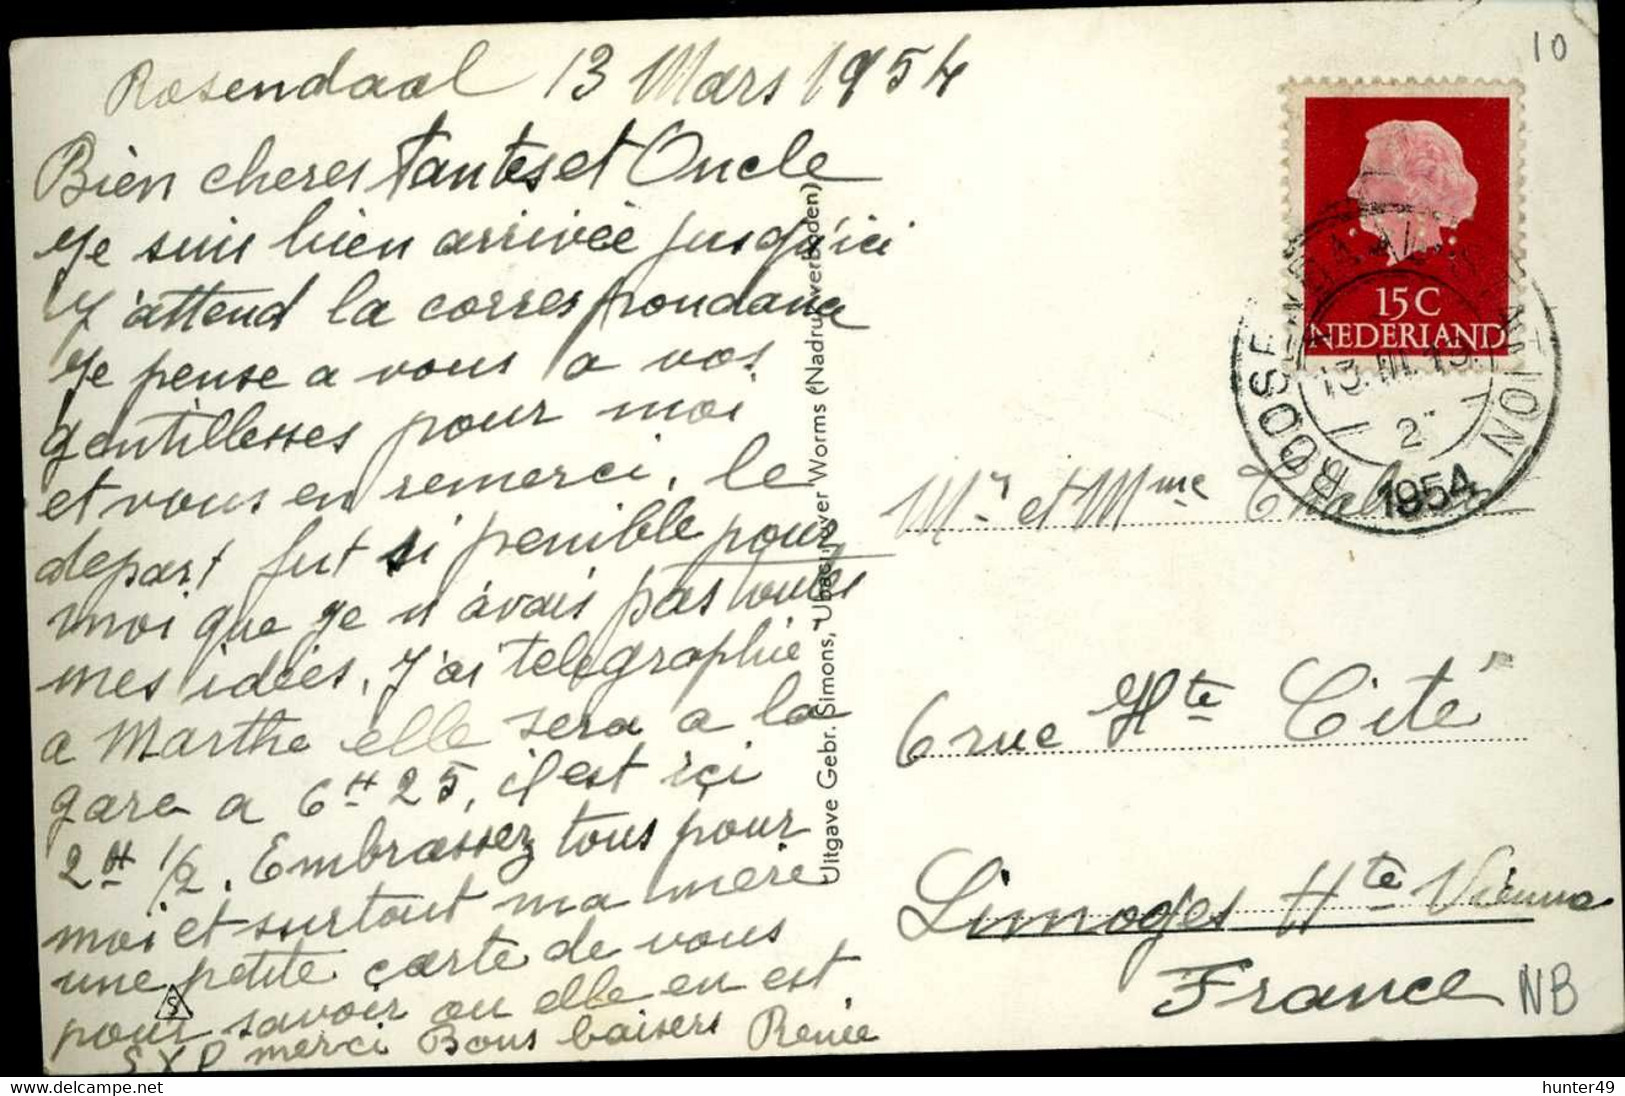 10
Rosendaal 13 Mars 1954
Bien cheres tantes et Oncle
Je suis bien arrivée jusqu'ici
J'attend la correspondance
Je pense a vous a vos
gentillesses pour moi
et vous en remerci, le
depart fut si penible pour
moi que je n'avais pas toutes
mes idées, J'ai telegraphie
a Marthe elle sera a la
gare a 6H 25, il est içi
2H 1/2. Embrassez tous pour
moi et surtout ma mere
une petite carte de vous
pour savoir ou elle en est
SXP merci Bons baisers Renée
S
Uitgave Gebr. Simons, Ubach over Worms (Nadruk verboden)
15 C
NEDERLAND
ROOSENDAAL STATION
13.III.19
2
1954
Mr et Mme
6 rue Hte Cité
Limoges Hte Vienne
France
NB
delcampe.net
hunter49